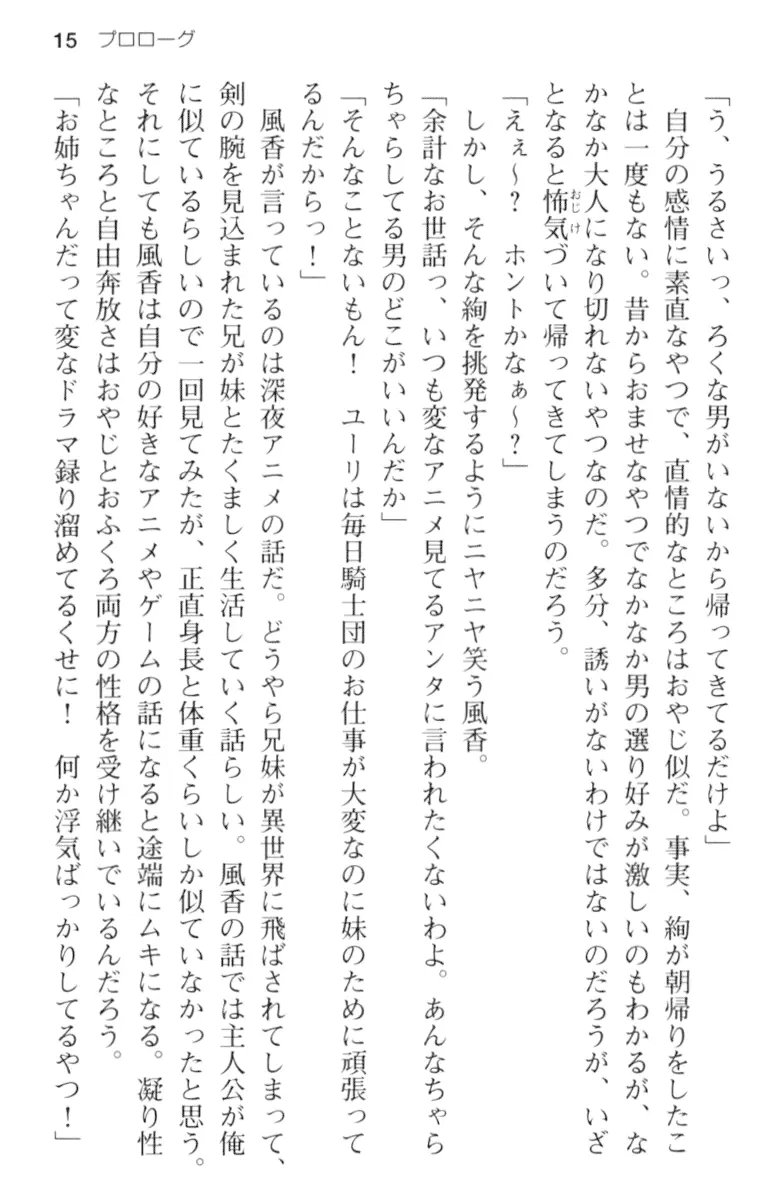 15 プロローグ
「う、うるさいっ、ろくな男がいないから帰ってきてるだけよ」
　自分の感情に素直なやつで、直情的なところはおやじ似だ。事実、絢が朝帰りをしたこ
とは一度もない。昔からおませなやつでなかなか男の選り好みが激しいのもわかるが、な
かなか大人になり切れないやつなのだ。多分、誘いがないわけではないのだろうが、いざ
となると怖気おじけづいて帰ってきてしまうのだろう。
「えぇ〜？　ホントかなぁ〜？」
　しかし、そんな絢を挑発するようにニヤニヤ笑う風香。
「余計なお世話っ、いつも変なアニメ見てるアンタに言われたくないわよ。あんなちゃら
ちゃらしてる男のどこがいいんだか」
「そんなことないもん！　ユーリは毎日騎士団のお仕事が大変なのに妹のために頑張って
るんだからっ！」
　風香が言っているのは深夜アニメの話だ。どうやら兄妹が異世界に飛ばされてしまって、
剣の腕を見込まれた兄が妹とたくましく生活していく話らしい。風香の話では主人公が俺
に似ているらしいので一回見てみたが、正直身長と体重くらいしか似ていなかったと思う。
それにしても風香は自分の好きなアニメやゲームの話になると途端にムキになる。凝り性
なところと自由奔放さはおやじとおふくろ両方の性格を受け継いでいるんだろう。
「お姉ちゃんだって変なドラマ録り溜めてるくせに！　何か浮気ばっかりしてるやつ！」